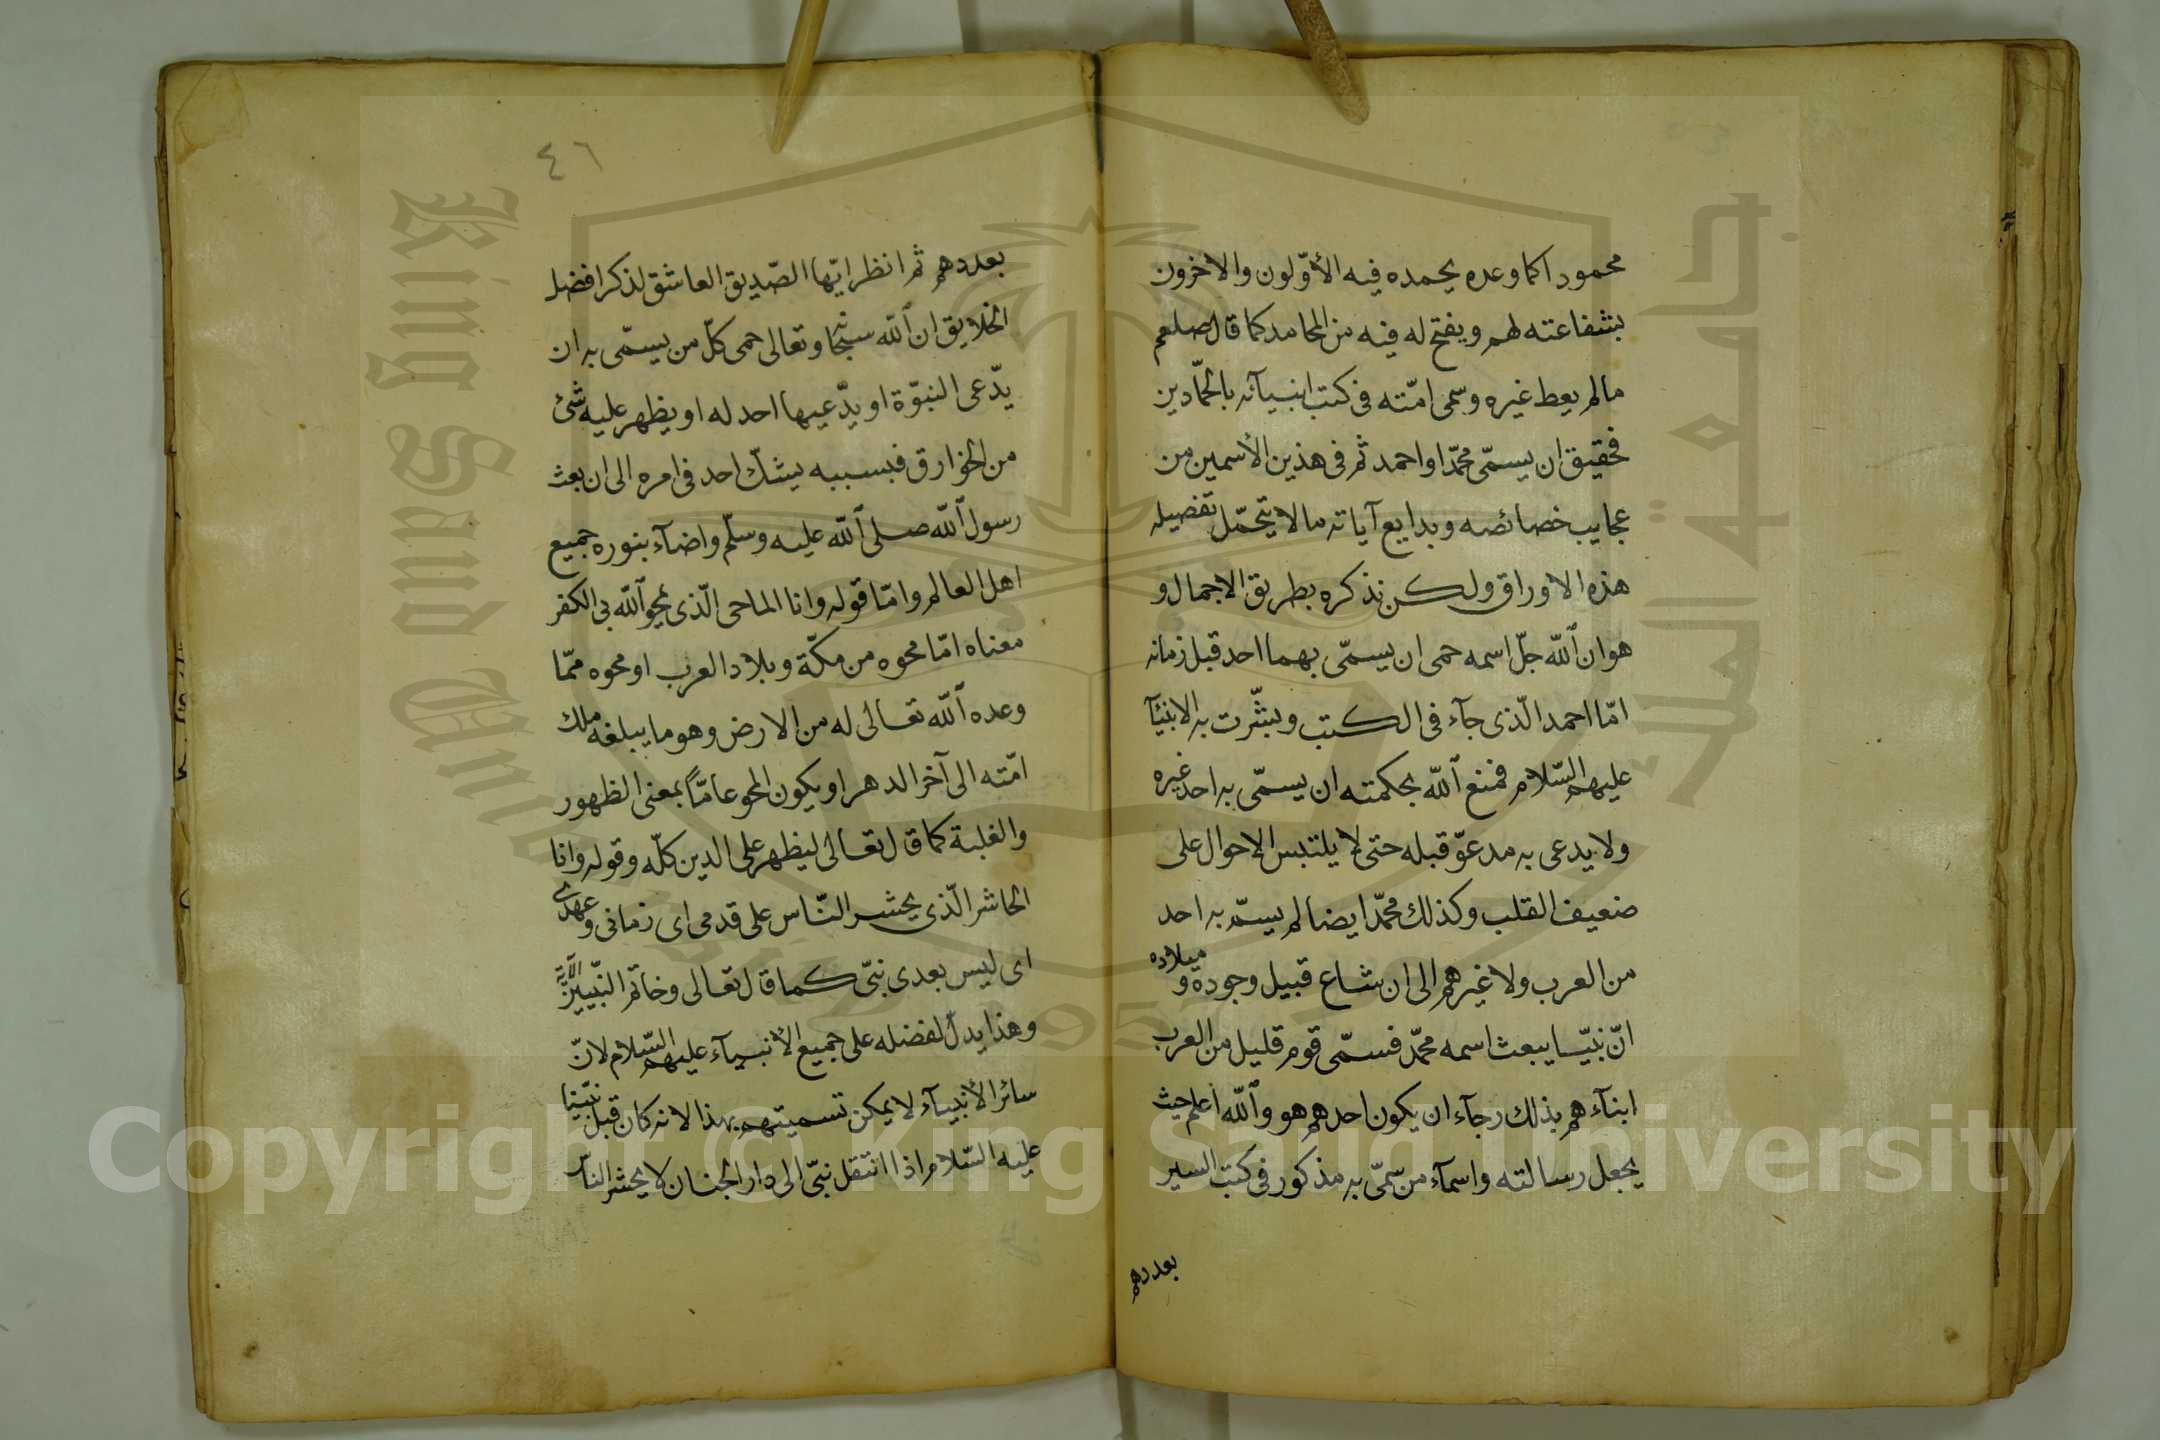 محمودا كما وعده يحمده فيه الأوّلون والاخرون
بشفاعته لهم ويفتح له فيه من المحامد كما قال صلعم
مالم يعط غيره وسمى امّته فى كتب انبيآئه بالحمّادين
فحقيق ان يسمّى محمّدا واحمد ثم فى هذين الأسمين من
عجايب خصائصه وبدايع آياته مالا يتحمّل تفصيله
هذه الاوراق ولكن نذكره بطريق الاجمال و
هو ان الله جلّ اسمه حمى ان يسمّى بهما احد قبل زمانه
امّا احمد الّذى جآء فى الكتب وبشّرت به الانبيآ
عليهم السّلام فمنع الله بحكمته ان يسمّى به احد غيره
ولا يدعى به مدعوّ قبله حتى لا يلتبس الاحوال على
ضعيف القلب وكذلك محمّد ايضا لم يسمّ به احد
من العرب ولا غيرهم الى ان شاع قبيل وجوده و ميلاده
انّ نبيّا يبعث اسمه محمّد فسمّى قوم قليل من العرب
ابنآءهم بذلك رجآء ان يكون احدهم هو والله أعلم حيث
يجعل رسالته واسمآء من سمّى به مذكور فى كتب السير
بعددهم
٤٦
بعددهم ثم انظر ايّها الصّديق العاشق لذكر افضل
الخلايق ان الله سبحا وتعالى حمى كلّ من يسمّى به ان
يدّعى النبوّة او يدّعيها احد له او يظهر عليه شئ
من الخوارق فبسببه يشكّ احد فى امره الى ان بعث
رسول الله صلى الله عليه وسلّم واضآء بنوره جميع
اهل العالم وامّا قوله وانا الماحى الّذى يمحو الله بى الكفر
معناه امّا محوه من مكّة وبلاد العرب او محوه ممّا
وعده الله تعالى له من الارض وهو ما يبلغه ملك
امّته الى آخر الدهر او يكون المحو عامّاً بمعنى الظهور
والغلبة كما قال تعالى ليظهر على الدين كلّه وقوله وانا
الحاشر الّذى يحشر النّاس على قدمى اى زمانى وعهدى
اى ليس بعدى نبىّ كما قال تعالى وخاتم النّبيّين الآية
وهذا يدلّ لفضله على جميع الأنبيآء عليهم السّلام لانّ
سائر الأنبيآء لا يمكن تسميتهم بهذا لانه كان قبل نبيّنا
عليه السّلام اذا انتقل نبىّ الى دار الجنان لا يحشر النّاس
Copyright © King Saud University
جامعة الملك
King Saud Univ
1957